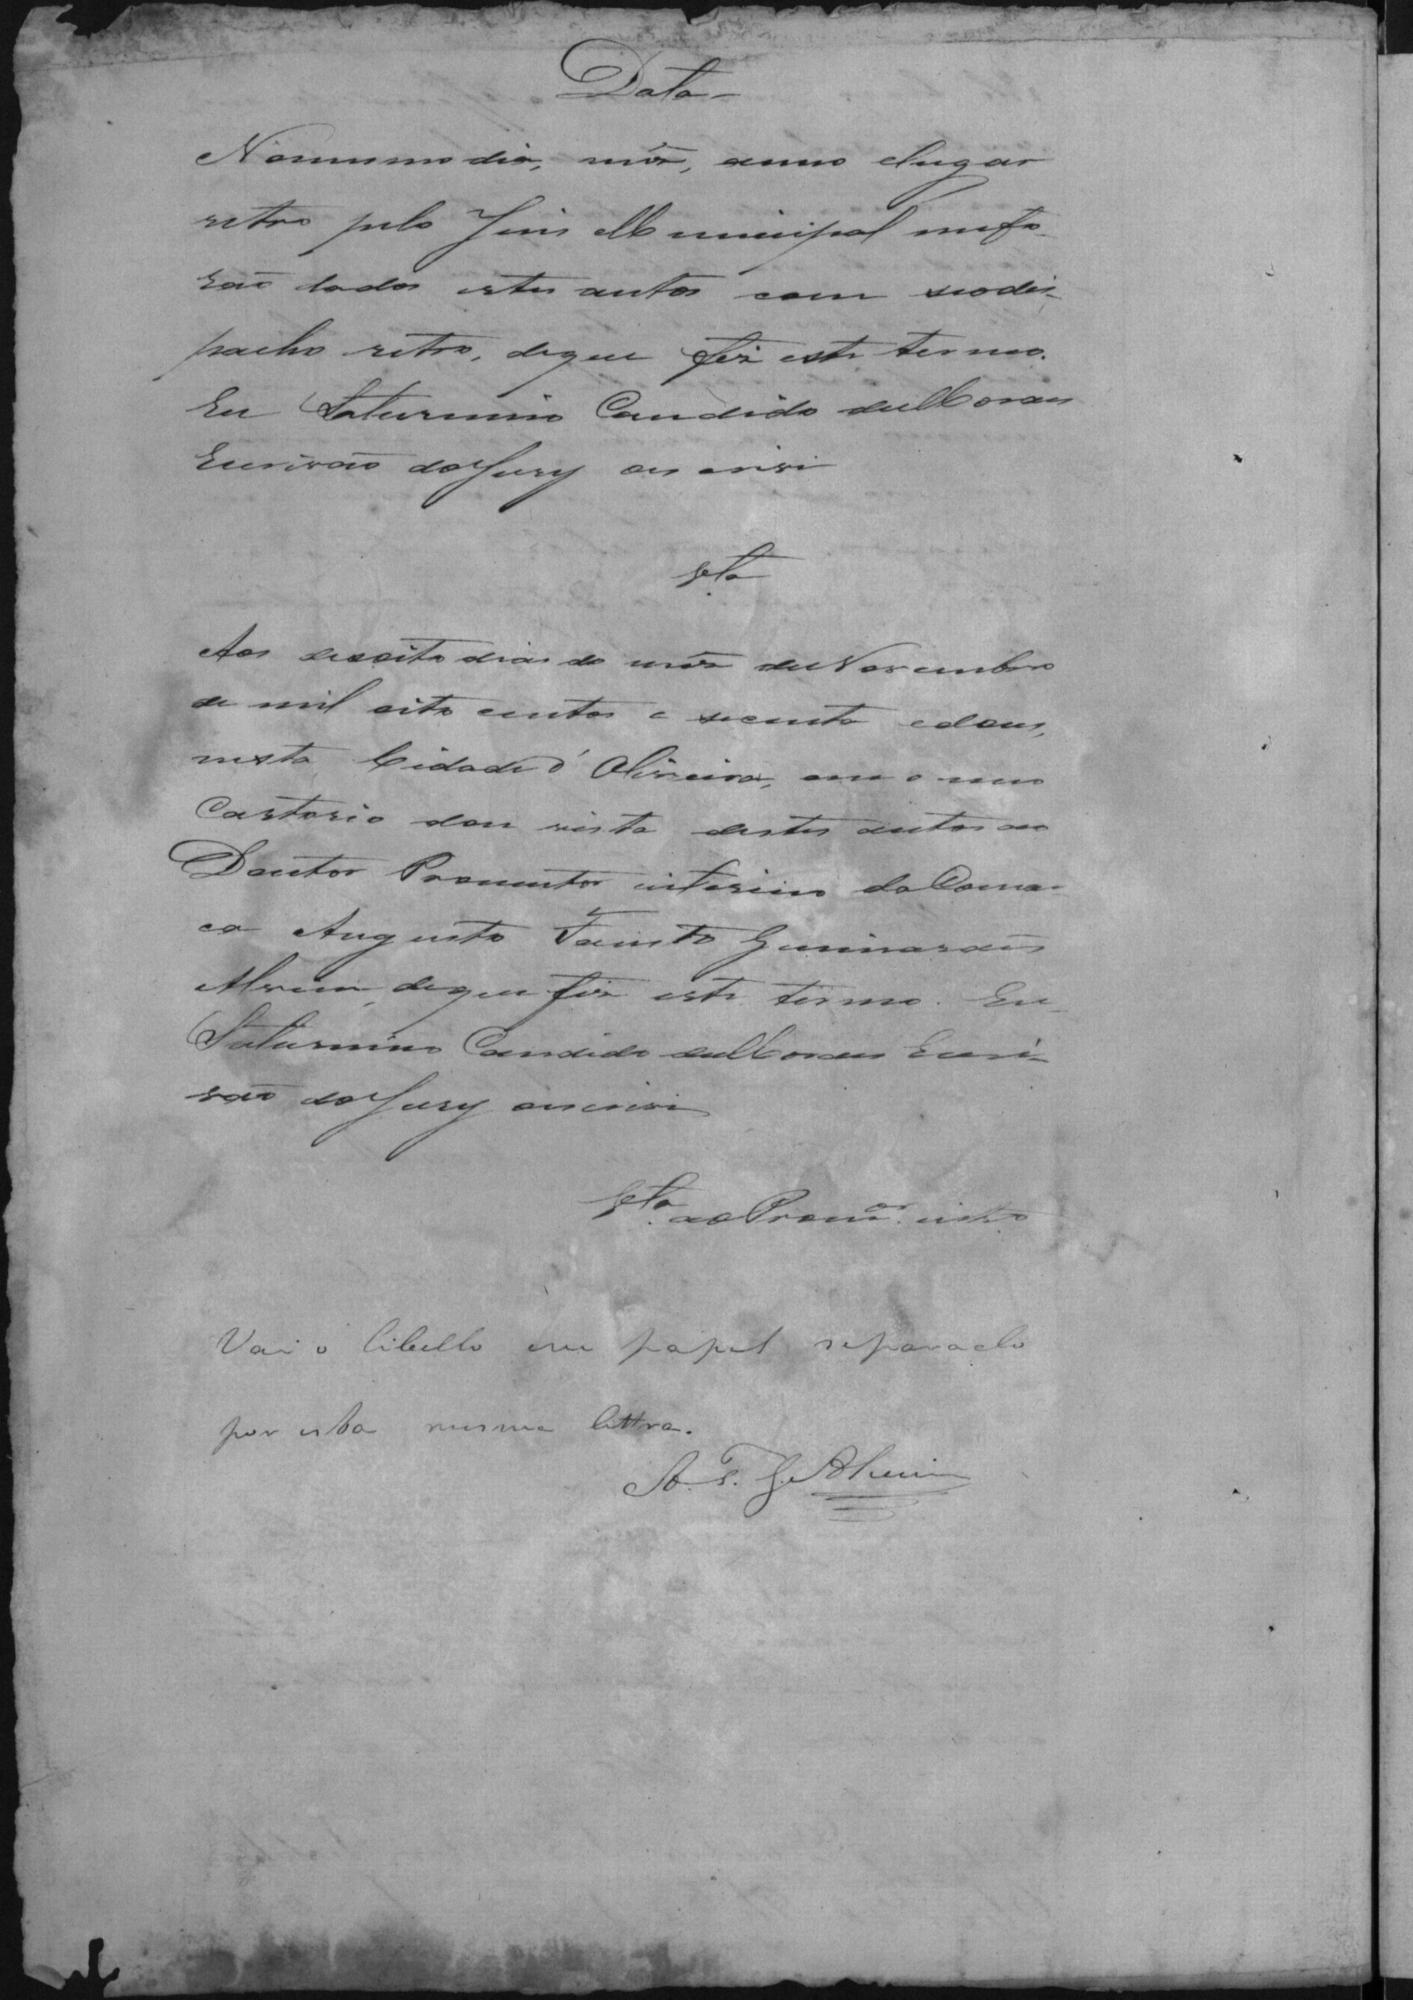 Data
Nomesmo dia, mês, anno elugar
retro pelo Juis Municipal mefo-
rão dados estes autos com seodes-
pacho retro, deque fiz este termo.
Eu Saturnino Candido deMoraes
Escrivão doJury oescrivi
V.ta
Aos desoito dias do mês deNovembro
de mil oito centos e secenta edous,
nesta Cidade d'Oliveira, em o meu
Cartorio dou vista destes autos ao
Doutor Promutor interino daComar-
ca Augusto Fausto Guimaraes
Alvim, deque fiz este termo. Eu
Saturnino Candido deMoraes Escri-
vão doJury oescrivi
V.ta aoProm.or intr.o
Vai o libello em papel separado
por esta mesma lettra.
A. F. G. Alvim